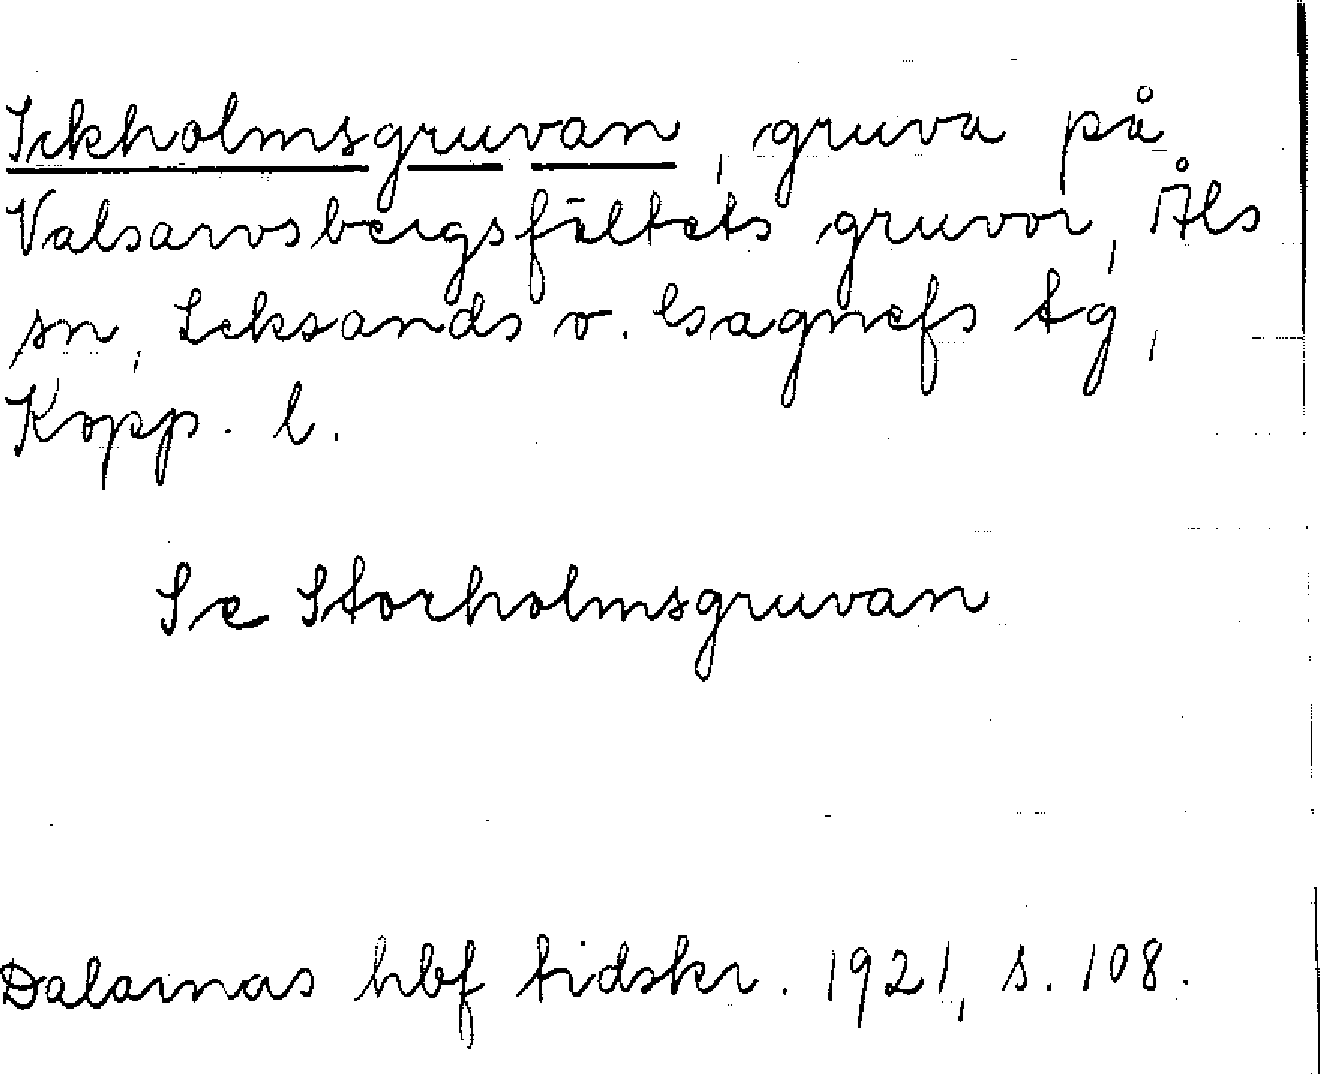 Lekholmsgruvan, gruva på
Valsarvsbergsfältets gruvor, Åls
sn, Leksands o. Gagnefs tg,
Kopp. l.
Se Storholmsgruvan
Dalarnas hbf tidskr. 1921, s. 108.